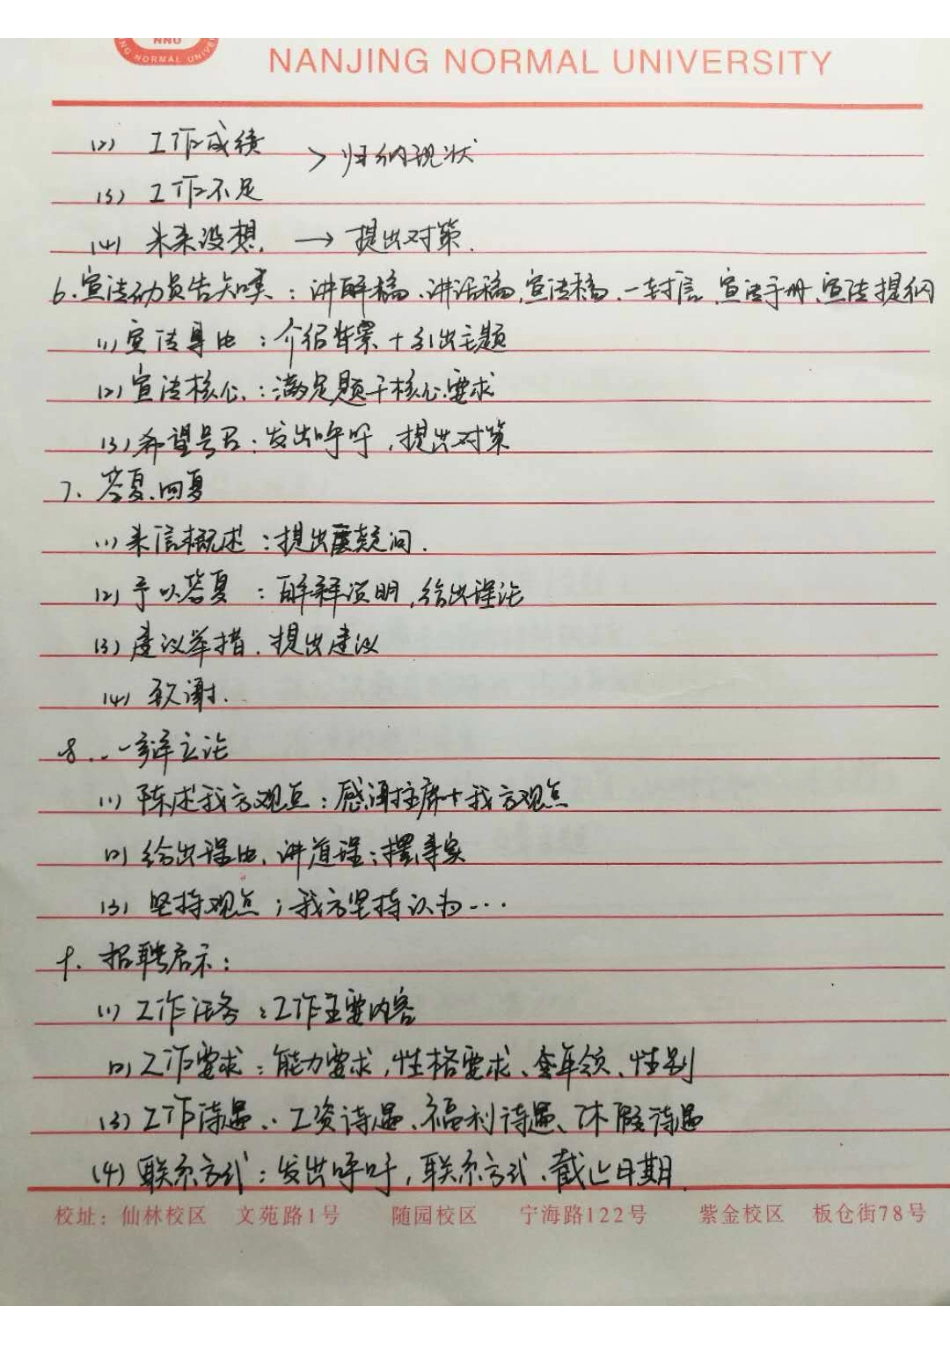 NNU
NG NORMAL UNIVE
NANJING NORMAL UNIVERSITY
(2) 工作成绩
> 归纳现状
(3) 工作不足
(4) 未来设想. → 提出对策.
6.宣传动员告知类：讲解稿、讲话稿、宣传稿、一封信、宣传手册、宣传提纲
(1) 宣传导由：介绍背景+引出主题
(2) 宣传核心：满足题干核心要求
(3) 希望号召：发出呼吁，提出对策
7. 答复、回复
(1) 来信概述：提出质疑问.
(2) 予以答复：解释说明，给出理论
(3) 建议举措. 提出建议
(4) 致谢.
8. 一辩立论
(1) 陈述我方观点：感谢主席+我方观点
(2) 给出理由，讲道理；摆事实
(3) 坚持观点；我方坚持认为…
9. 招聘启示：
(1) 工作任务：工作主要内容
(2) 工作要求：能力要求，性格要求、年龄、性别
(3) 工作待遇：工资待遇、福利待遇、休假待遇
(4) 联系方式：发出呼吁，联系方式、截止日期
校址：仙林校区 文苑路1号 随园校区 宁海路122号 紫金校区 板仓街78号